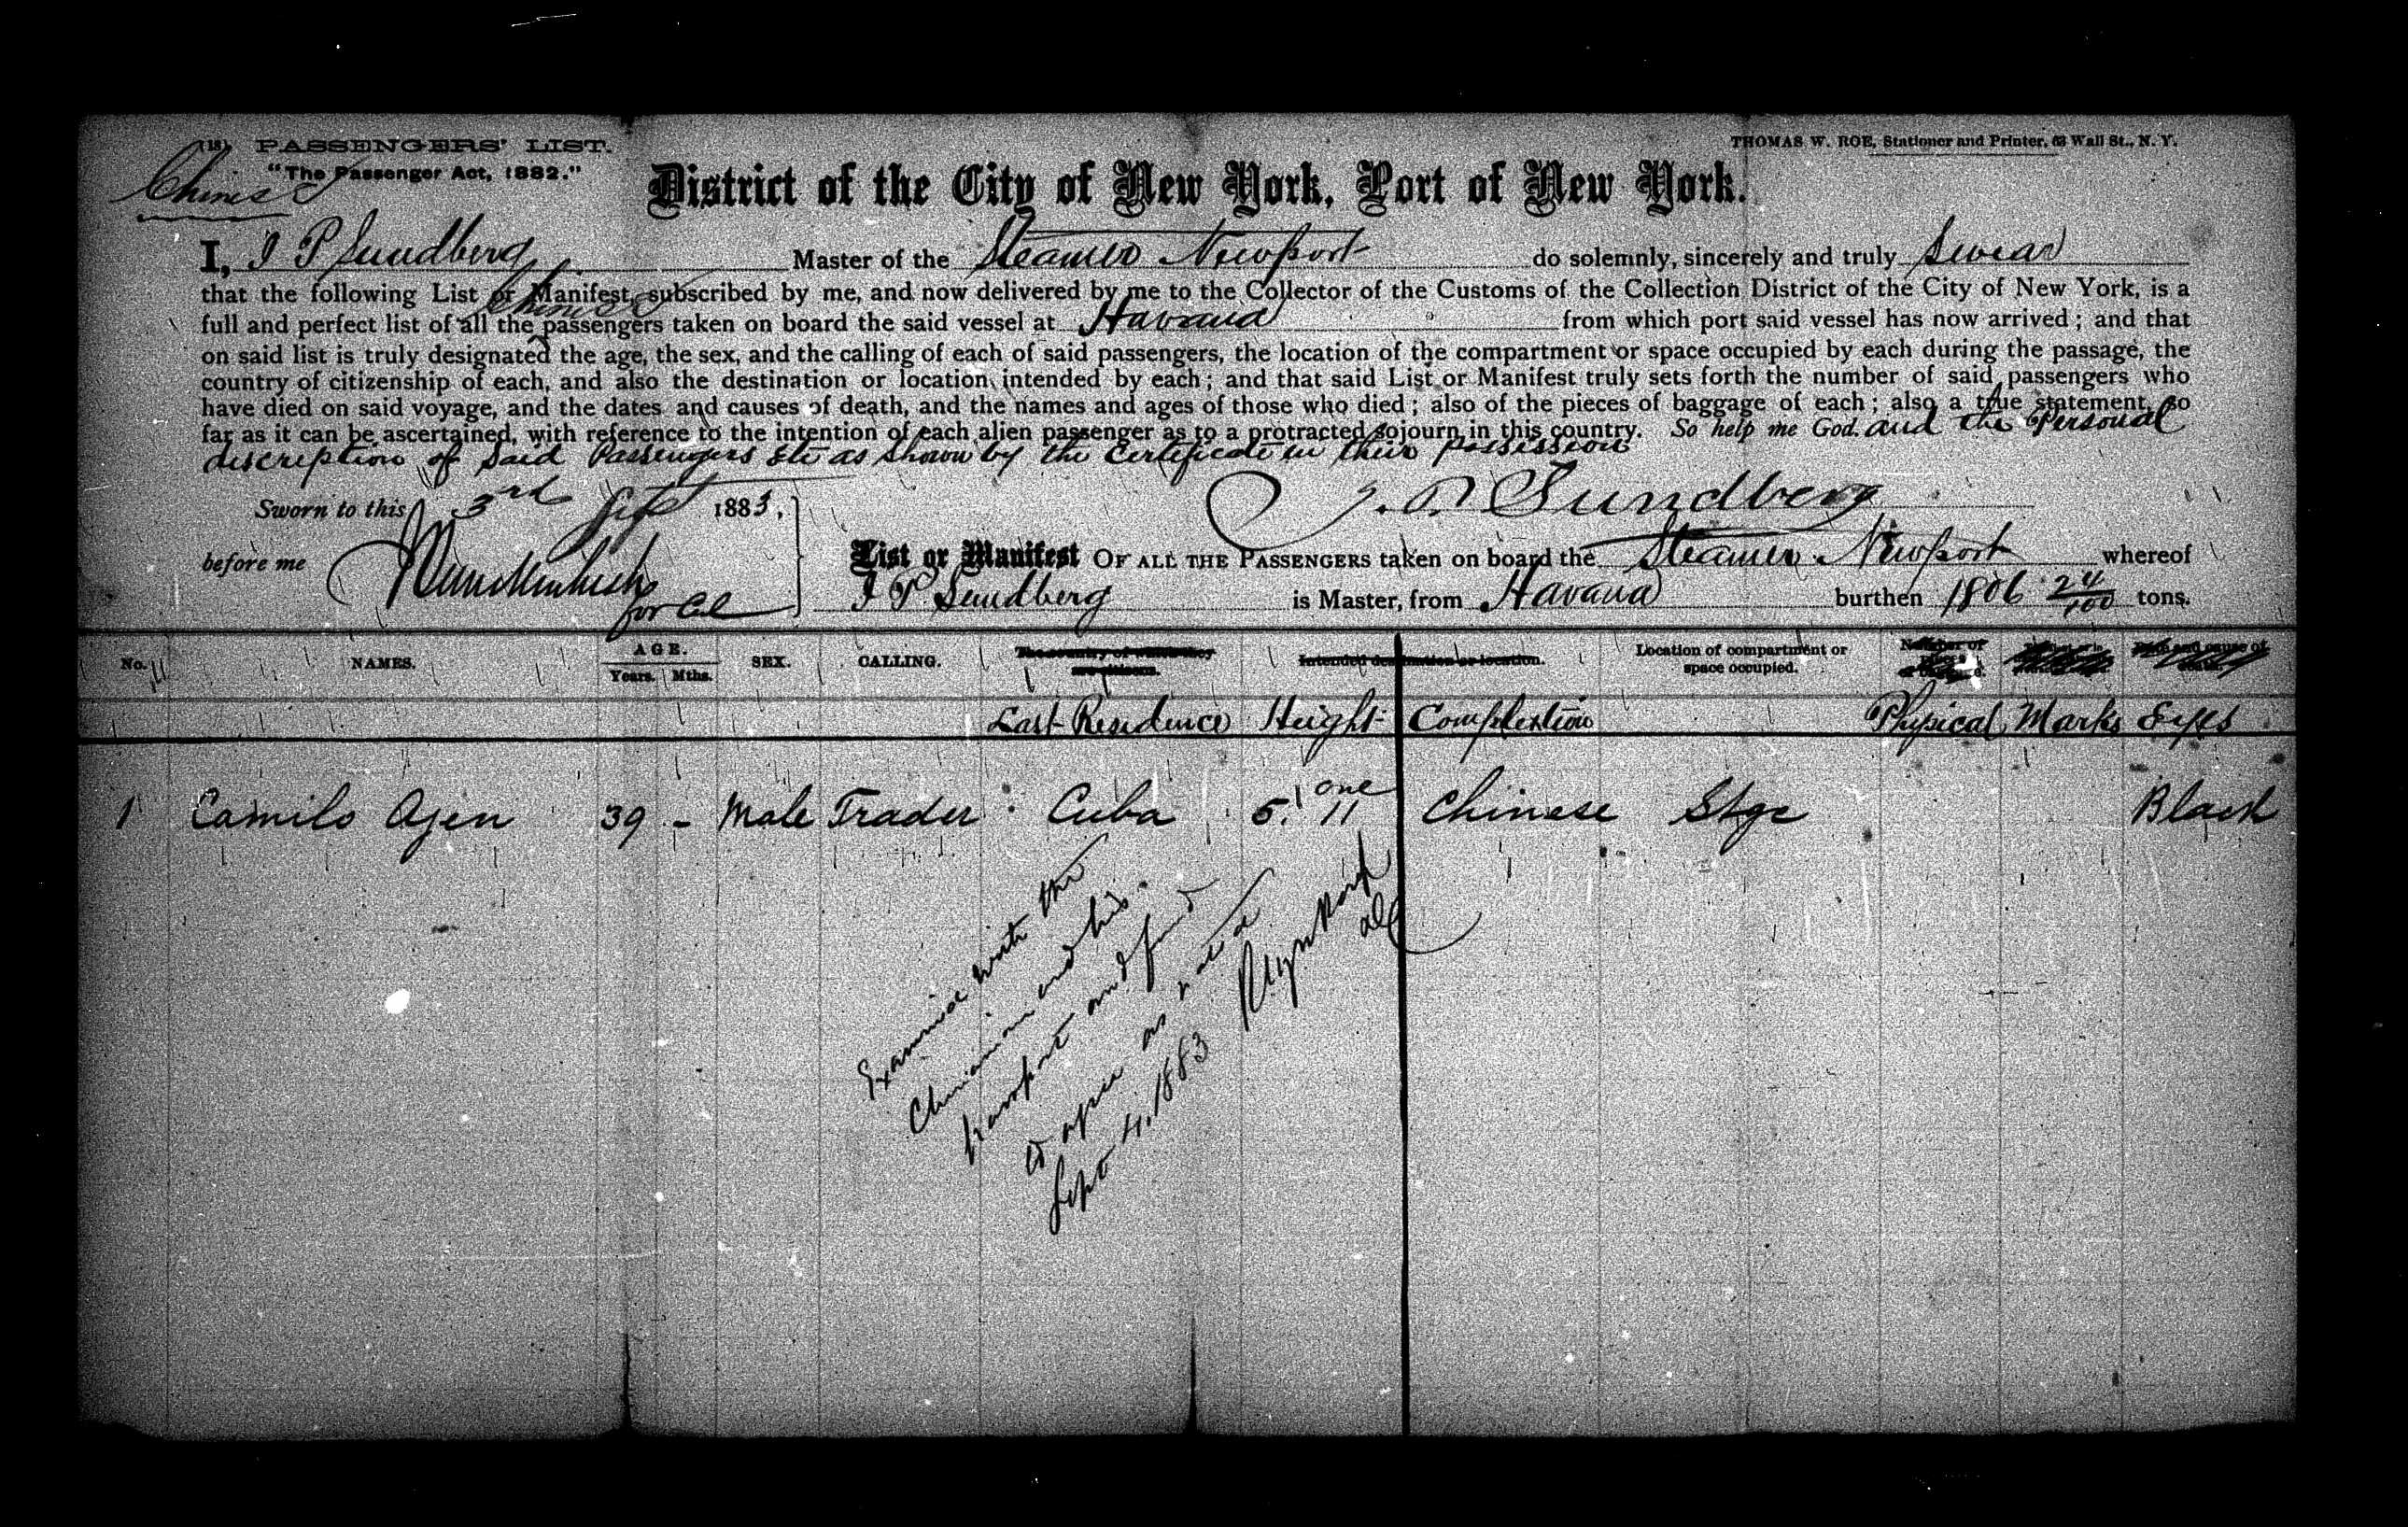 (18) PASSENGERS' LIST.
THOMAS W. ROE, Stationer and Printer, 63 Wall St., N. Y.
"The Passenger Act, 1882."
Chinese
District of the City of New York, Port of New York.
I, J P Sundberg Master of the Steamer Newport do solemnly, sincerely and truly Swear
that the following List or Manifest, subscribed by me, and now delivered by me to the Collector of the Customs of the Collection District of the City of New York, is a
Chinese
full and perfect list of all the passengers taken on board the said vessel at Havana from which port said vessel has now arrived; and that
on said list is truly designated the age, the sex, and the calling of each of said passengers, the location of the compartment or space occupied by each during the passage, the
country of citizenship of each, and also the destination or location intended by each; and that said List or Manifest truly sets forth the number of said passengers who
have died on said voyage, and the dates and causes of death, and the names and ages of those who died; also of the pieces of baggage of each; also a true statement, so
far as it can be ascertained, with reference to the intention of each alien passenger as to a protracted sojourn in this country. So help me God. and the Personal
discription of Said Passengers etc as Shown by the Certificate in their possession
Sworn to this 3rd Sept 1883,
J. P. Sundberg
before me
for Col
List or Manifest OF ALL THE PASSENGERS taken on board the Steamer Newport whereof
J P Sundberg is Master, from Havana burthen 1806 24/100 tons.
No. NAMES. AGE. Years. Mths. SEX. CALLING. The country of which they are citizens. Intended destination or location. Location of compartment or space occupied. Number of
Last Residence Height Complextion Physical Marks Eyes
1 Camilo Ajen 39 - Male Trader Cuba 5.' one 11 Chinese Stge Black
Examined with the
Chinaman and his
passport and found
to agree as
Sept 4. 1883